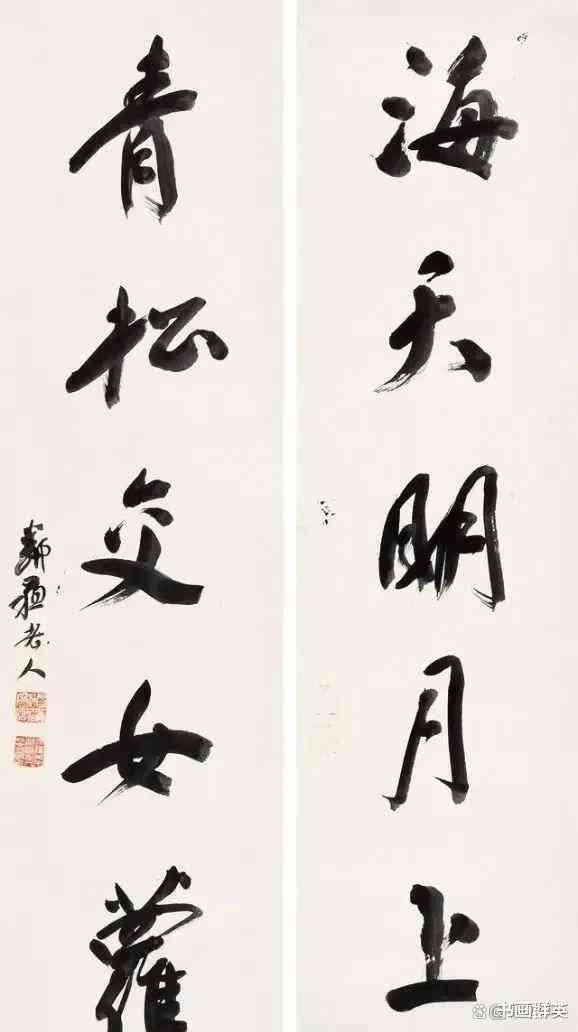 海天明月上
青松交女蘿
鄰蘇老人
书画群英